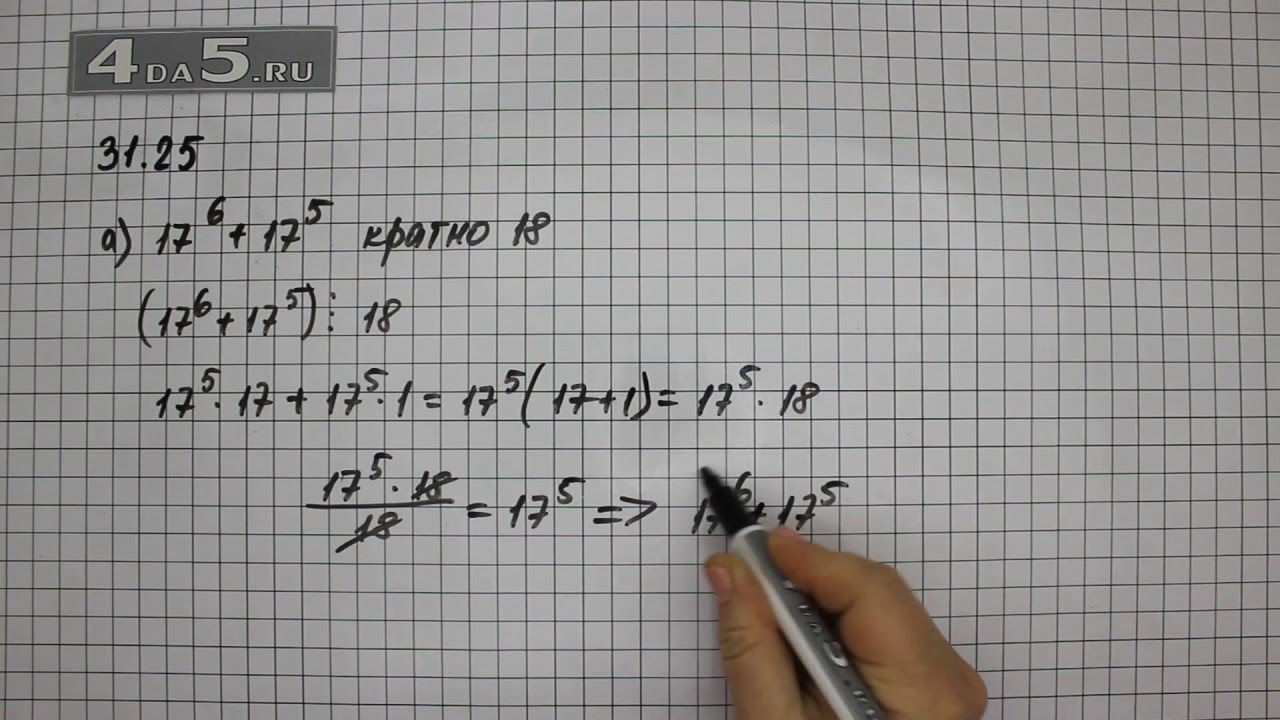 4DA5.RU
31.25
а) 17⁶ + 17⁵ кратно 18
(17⁶ + 17⁵) ⋮ 18
17⁵ · 17 + 17⁵ · 1 = 17⁵(17 + 1) = 17⁵ · 18
17⁵ · 18 / 18 = 17⁵ => 17⁶ + 17⁵